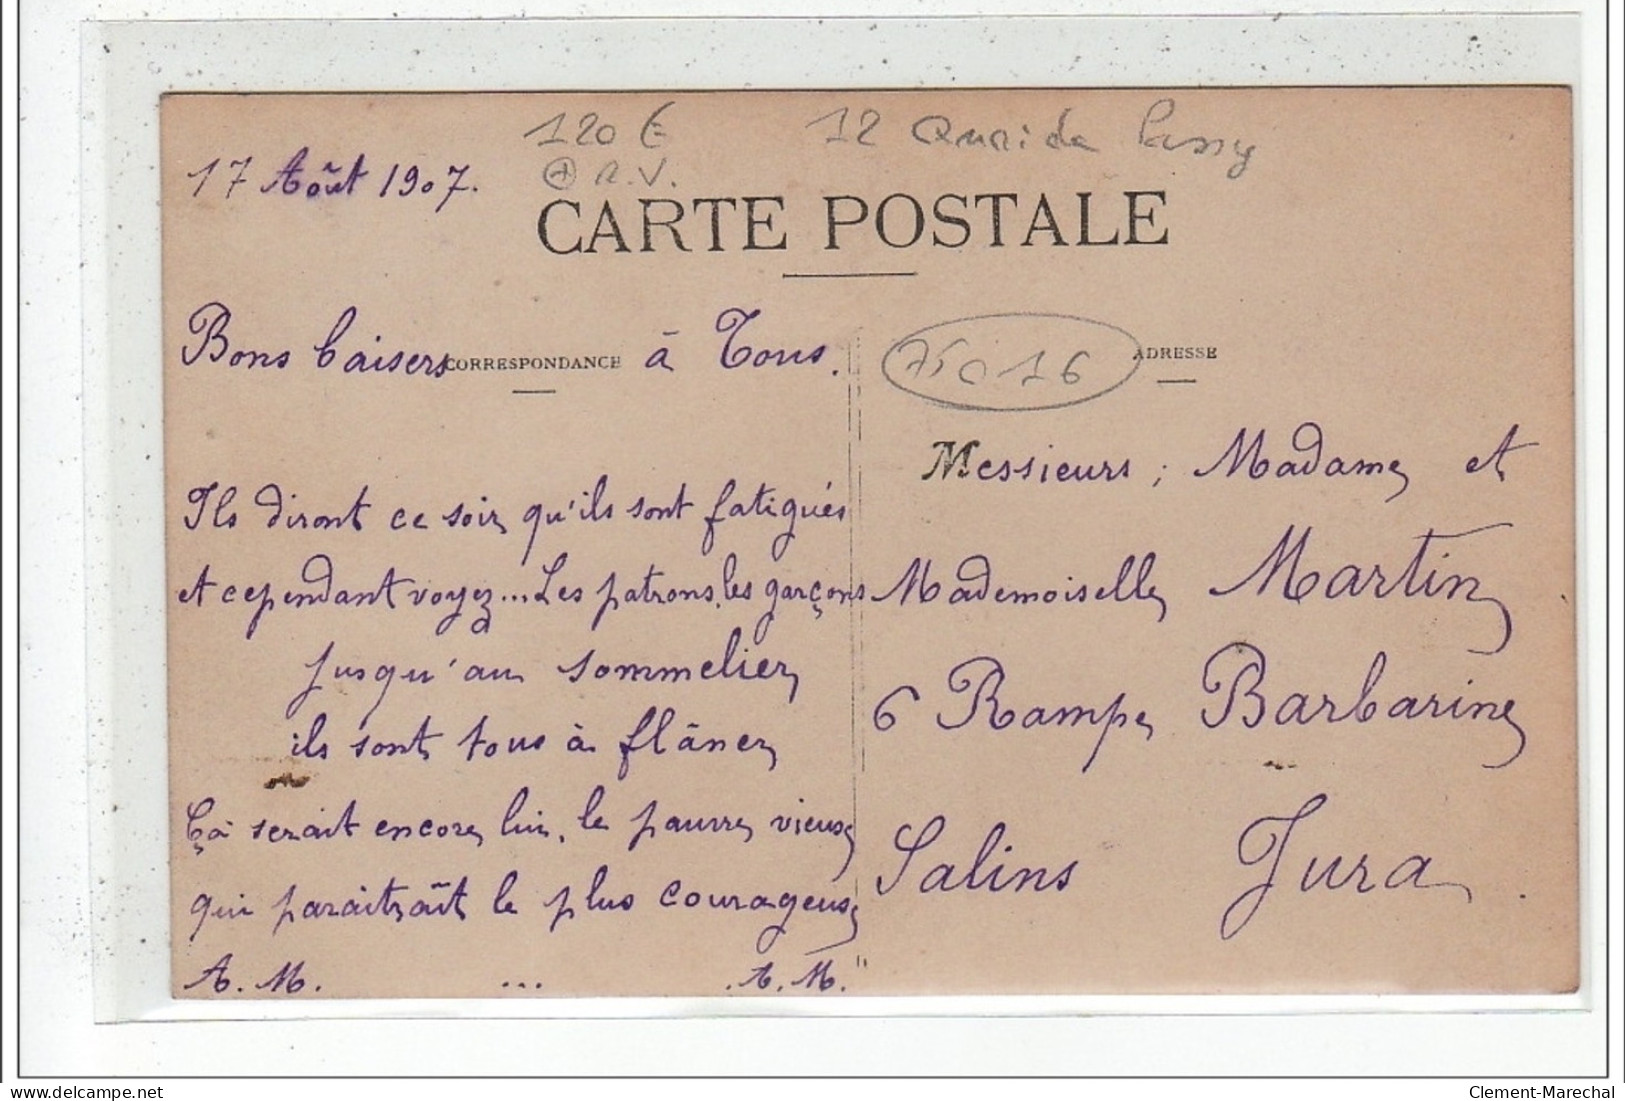 120 €
12 Quai de Passy
17 Août 1907.
+ R.V.
CARTE POSTALE
Bons baisers à Tous.
CORRESPONDANCE
75016
ADRESSE
Ils diront ce soir qu'ils sont fatigués
et cependant voyez... Les patrons, les garçons
jusqu'au sommelier
ils sont tous à flâner
Çà serait encore lui, le pauvre vieux
qui paraitrait le plus courageux
A. M. ... A. M.
Messieurs, Madame et
Mademoiselle Martin
6 Rampe Barbarine
Salins Jura.
delcampe.net
Clement-Marechal